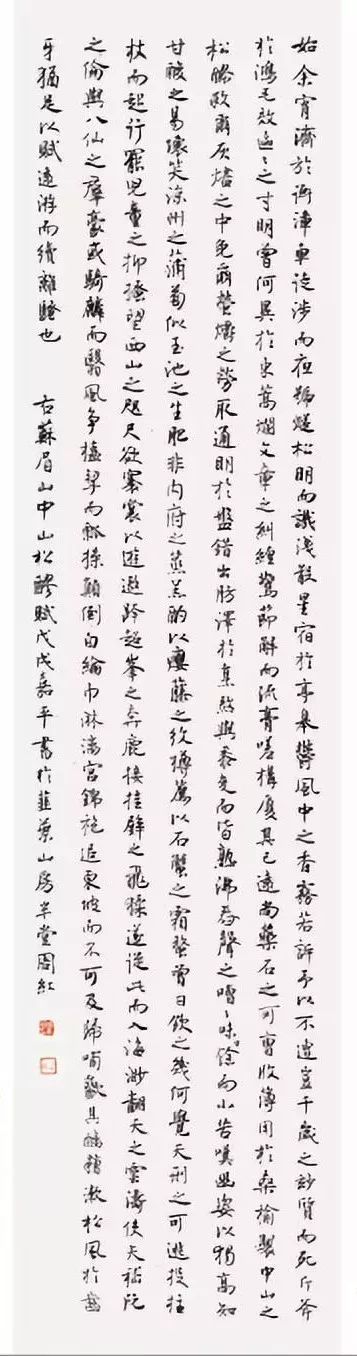 始余宵濟於衡漳車徒涉而夜號燧松明而識淺散星宿於亭皋鬱風中之香霧若訴予以不遭豈千歲之妙質而死斤斧
於鴻毛效區區之寸明曾何異於束蒿爛文章之糾纏驚節解而流膏嗟構廈其已遠尚藥石之可曹收薄用於桑榆製中山之
松醪救爾灰燼之中免爾螢爝之勞取通明於盤錯出肪澤於烹熬與黍麥而皆熟沸春聲之嘈嘈味甘餘而小苦嘆幽姿以獨高知
甘酸之易壞笑涼州之蒲萄似玉池之生肥非内府之蒸羔酌以癭藤之紋樽薦以石蟹之霜螯曾日飲之幾何覺天刑之可逃投拄
杖而起行罷兒童之抑搔望西山之咫尺欲褰裳以遊遨跨超峯之奔鹿接挂壁之飛猱遂從此而入海渺翻天之雲濤使夫嵇阮
之倫與八仙之羣豪或騎麟而翳鳳爭榼挈而瓢操顛倒白綸巾淋漓宮錦袍追東坡而不可及歸餔歠其醨糟漱松風於齒
牙猶足以賦遠游而續離騷也 右蘇眉山中山松醪賦戊戌嘉平書於韭葉山房半堂周紅